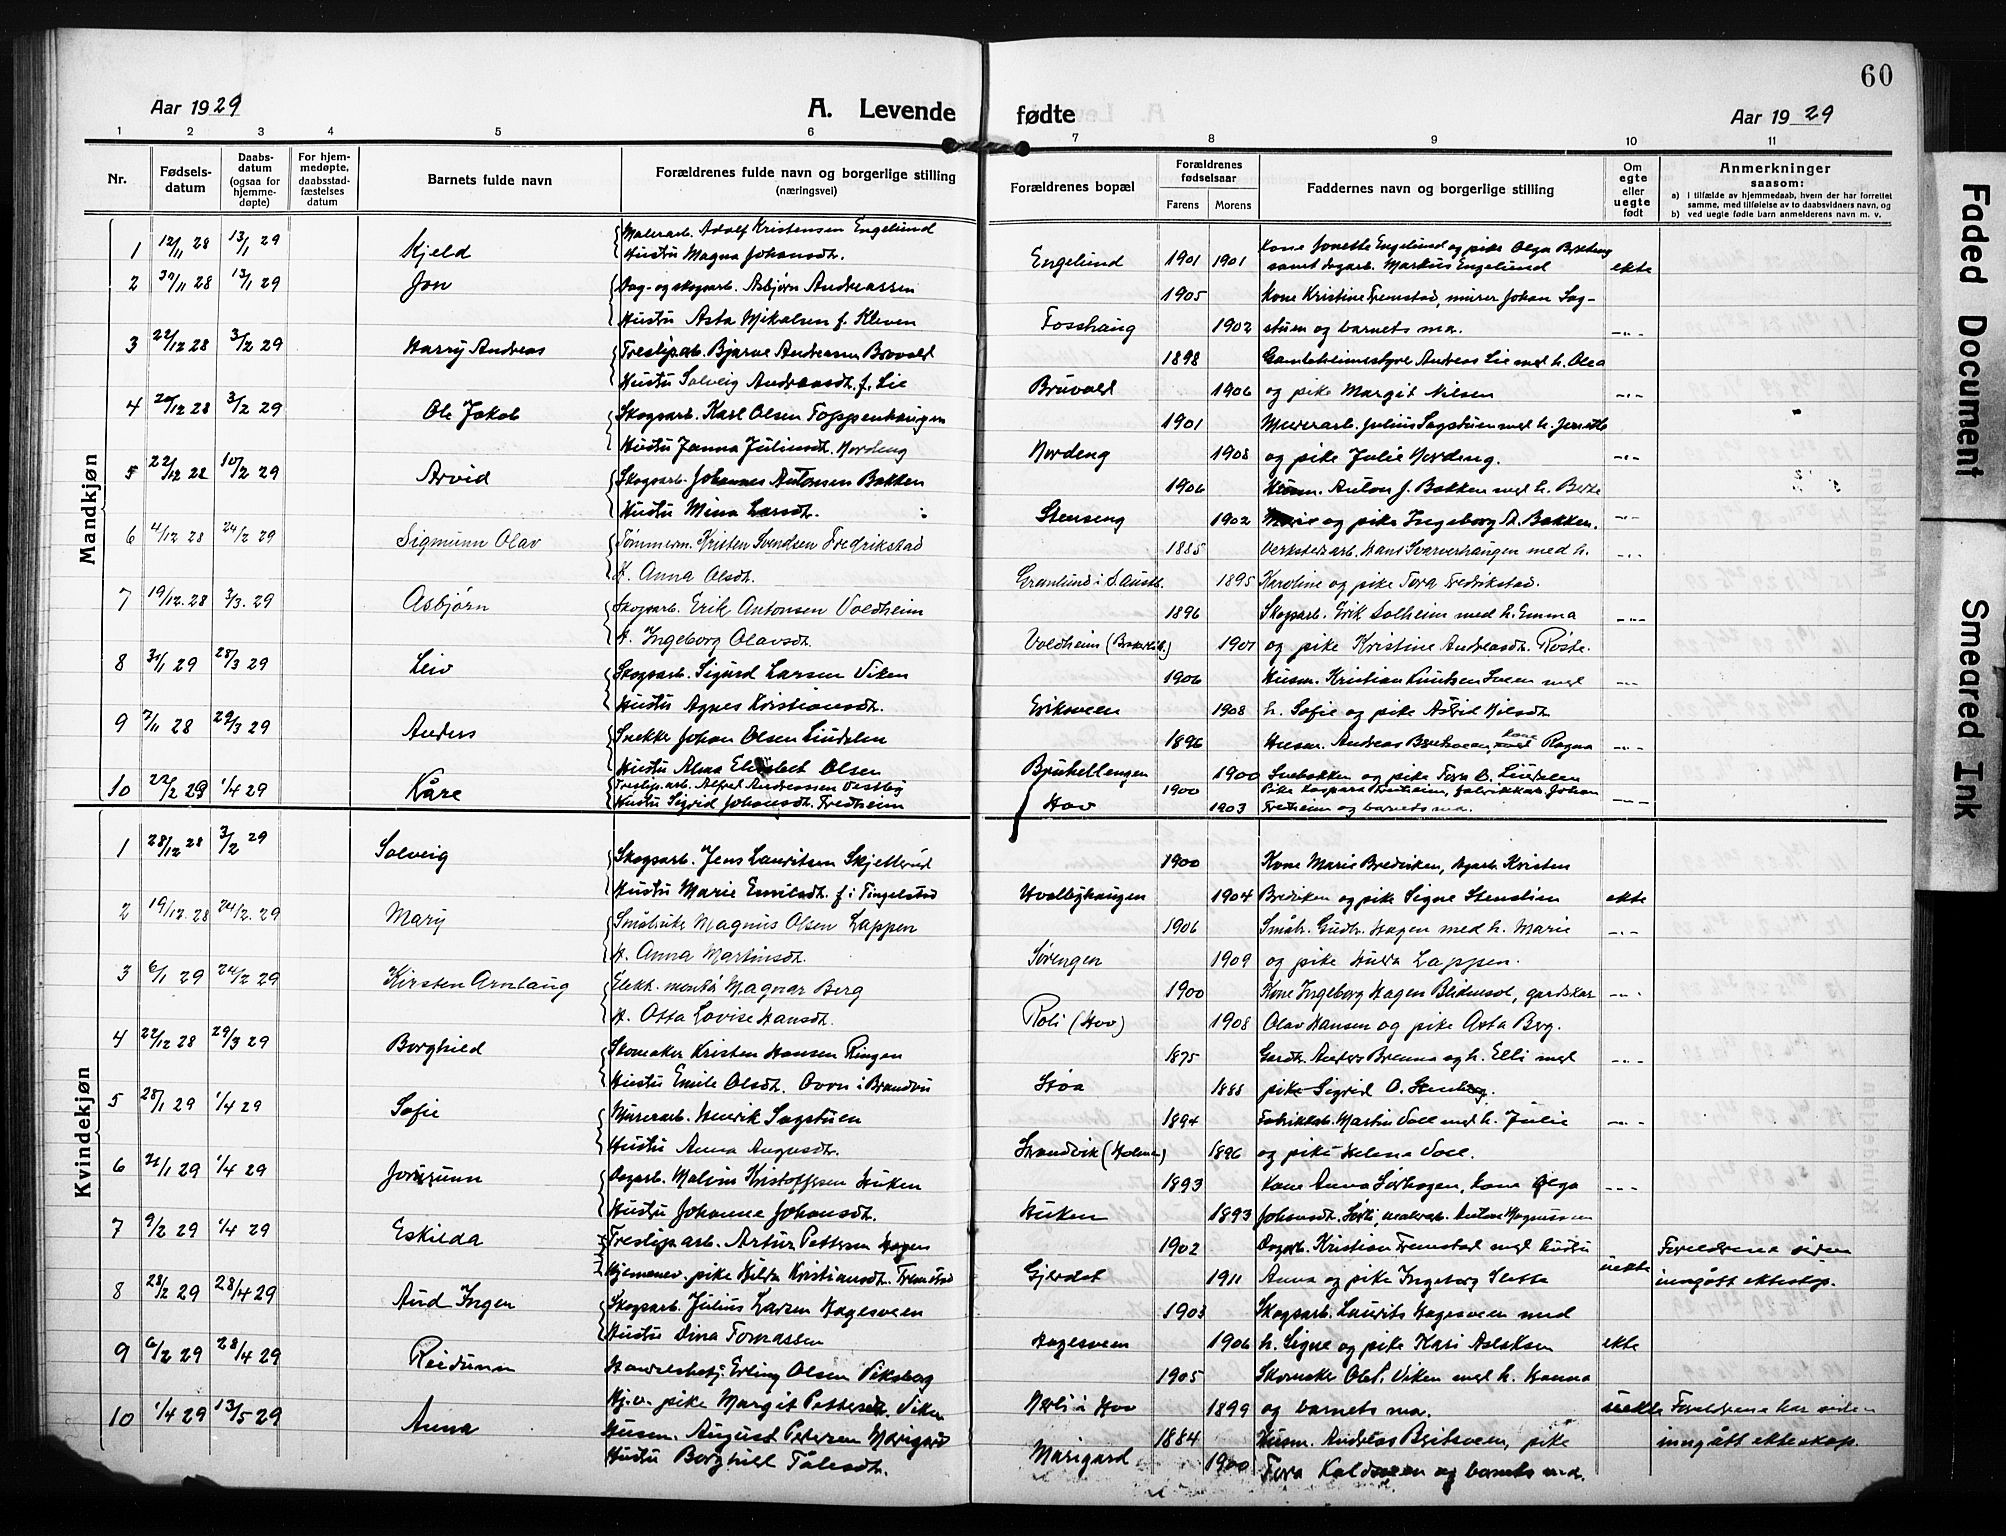 60
Aar 1929
A. Levende fødte
Aar 1929
1 2 3 4 5 6 7 8 9 10 11
Nr.
Fødselsdatum
Daabsdatum (ogsaa for hjemmedøpte)
For hjemmedøpte, daabsstadfæstelses datum
Barnets fulde navn
Forældrenes fulde navn og borgerlige stilling (næringsvei)
Forældrenes bopæl
Forældrenes fødselsaar
Farens Morens
Faddernes navn og borgerlige stilling
Om egte eller uegte født
Anmerkninger saasom:
a) i tilfælde av hjemmedaab, hvem der har forrettet samme, med tilføielse av to daabsvidners navn, og
b) ved uegte fødte barn anmelderens navn m. v.
Mandkjøn
1 12/11 28 13/1 29 Kjeld Malerarb. Adolf Kristensen Engelund Engelund 1901 1901 Kone Jonette Engelund og pike Olga
Hustru Magna Johansdt. samt dagarb. Markus Engelund ekte
2 30/11 28 13/1 29 Jon Dag- og skogsarb. Asbjørn Andreassen 1905 Kone Kristine Fremstad, murer Johan Sag-
Hustru Asta Mikalsen f. Kleven Fosshaug 1902 stuen og barnets mor. -"-
3 22/12 28 3/2 29 Harry Andreas Treslip.arb. Bjarne Andreasen Bruvold 1898 Gamleheimsstyrer Andreas Lie med h. Olea
Hustru Solveig Andreasdt. f. Lie Bruvold 1906 og pike Margit Nilsen -"-
4 20/12 28 3/2 29 Ole Jakob Skogsarb. Karl Olsen Toppenhaugen 1901 Murerarb. Julius Sagstuen med h. Jensette
Hustru Janna Juliusdt. Nordeng Nordeng 1908 og pike Julie Nordeng. -"-
5 22/12 28 10/2 29 Arvid Skogsarb. Johannes Antonsen Bakken 1906 Husm. Anton J. Bakken med h. Berte
Hustru Mina Larsdt. Stenseng 1902 Marie og pike Ingeborg A. Bakken. -"-
6 4/12 28 24/2 29 Sigmunn Olav Tømmerm. Kristen Svendsen Fredrikstad 1885 Verkstedsarb. Hans Svarverhaugen med h. -"-
H. Anna Olsdt. Granlund i S. Austl. 1895 Karoline og pike Tora Fredrikstad.
7 19/12. 28 3/3. 29 Asbjørn Skogsarb. Erik Antonsen Voldheim 1896 Skogsarb. Erik Solheim med h. Emma -"-
H. Ingeborg Olavsdt. Voldheim 1901 og pike Kristine Andreasdt. Røste.
8 31/1 29 28/3 29 Leiv Skogsarb. Sigurd Larsen Viken 1906 Husm. Kristian Knutsen Sveen med -"-
Hustru Agnes Kristiansdt. Eriksveen 1908 h. Sofie og pike Astrid Nilsdt.
9 7/11 28 29/3 29 Anders Snekker Johan Olsen Lindalen 1896 Husm. Andreas Breiveen, kone Ragna -"-
Hustru Alma Elisabet Olsen Bjuhellengen 1900 Snebakken og pike Tora O. Lindalen
10 22/2 29 1/4 29 Kåre Treslip.arb. Alfred Andreassen Vestby 1900 Pike Kaspara Fredheim, fabrikkarb. Johan
Hustru Sigrid Johansdt. Fredheim Hov 1903 Fredheim og barnets mor. -"-
Kvindekjøn
1 28/12 28 3/2 29 Solveig Skogsarb. Jens Lauritsen Skjellerud 1900 Kone Marie Bredviken, dagarb. Kristen
Hustru Marie Emilsdt. f. i Tingelstad Hvalbyhaugen 1904 Bredviken og pike Signe Stenslien ekte
2 19/12. 28 24/2. 29 Mary Småbruker Magnus Olsen Lappen 1906 Småbr. Gudbr. Hagen med h. Marie -"-
H. Anna Martinsdt. Sørengen 1909 og pike Hulda Lappen.
3 6/1 29 24/2 29 Kirsten Arnlaug Elekt. montør Magnar Berg 1900 Kone Ingeborg Hagen Blidensol, gardskar -"-
H. Otta Lovise Hansdt. Roli (Hov) 1908 Olav Hansen og pike Asta Berg.
4 22/12 28 29/3 29 Borghild Skomaker Kristen Hansen Ringen 1875 Gardbr. Anders Brenna og h. Elli med -"-
Hustru Emile Olsdt. Ovrn i Brandbu Hoa 1888 pike Sigrid O. Stenberg.
5 28/1 29 1/4 29 Sofie Murerarb. Henrik Sagstuen 1894 Fabrikkarb. Martin Voll med h. Julie -"-
Hustru Anna Augusdt. Strandvik (Holmen) 1896 og pike Helena Voll.
6 21/1 29 1/4 29 Jorunn Dagarb. Malvin Kristoffersen Huken 1893 Kone Anna Sørhagen, kone Olga -"-
Hustru Johanne Johansdt. Huken 1893 Johansdt. Sørli, malerarb. Anton Magnussen
7 9/2 29 1/4 29 Eskilda Treslip.arb. Artur Pettersen Hagen 1902 Dagarb. Kristian Fremstad med hustru Foreldrene siden
Hjemmev. pike Hilda Kristiansdt. Fremstad Gjerdet 1911 Anna og pike Ingeborg Slette uekte inngått ekteskap.
8 28/2 29 28/4 29 Aud Inger Skogsarb. Julius Larsen Hagesveen 1903 Skogsarb. Laurits Hagesveen med
Hustru Dina Tomassen Hagesveen 1906 h. Signe og pike Kari Aslaksen ekte
9 6/2 29 28/4 29 Reidunn Handelsbetj. Erling Olsen Viksberg 1905 Skomaker Ole S. Viken med h. Hanna
Hj.v. pike Margit Pettersdt. Viken Nerli i Hov 1899 og barnets mor. uekte Foreldrene har siden
10 1/4 29 13/5 29 Anna Husm. August Petersen Marigard 1884 Husm. Andreas Breitsveen, pike inngått ekteskap.
Hustru Borghild Tolesdt. Marigard 1900 Tora Koldsveen og barnets mor.
Faded Document
Smeared Ink